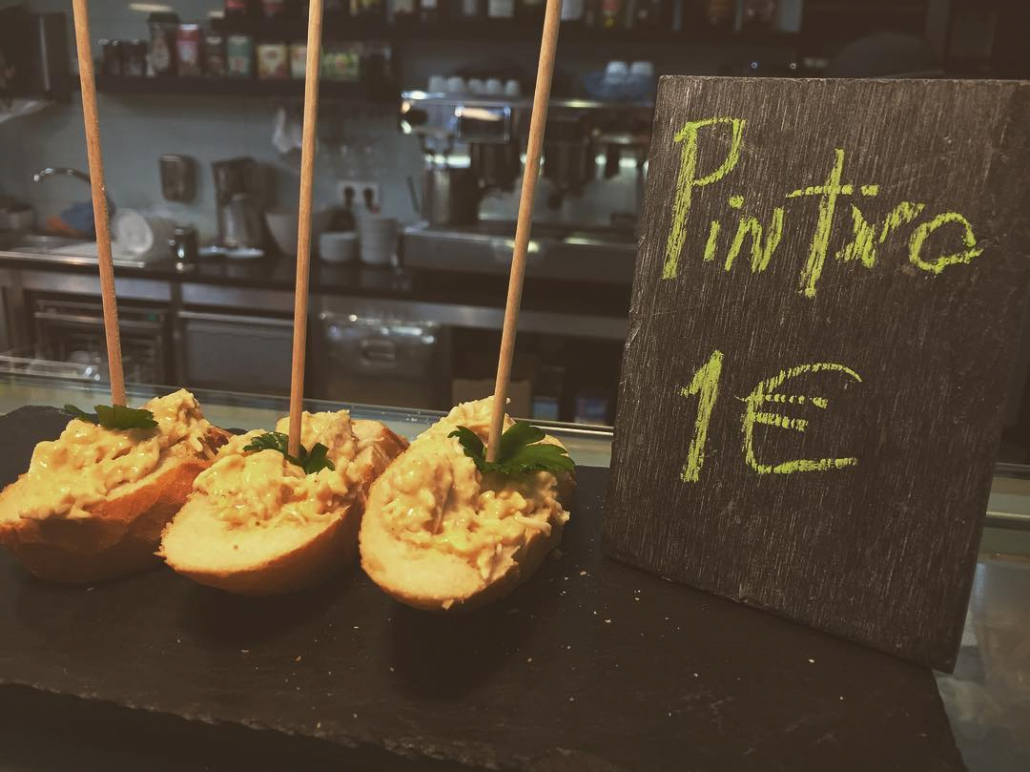 Pintxo
1€